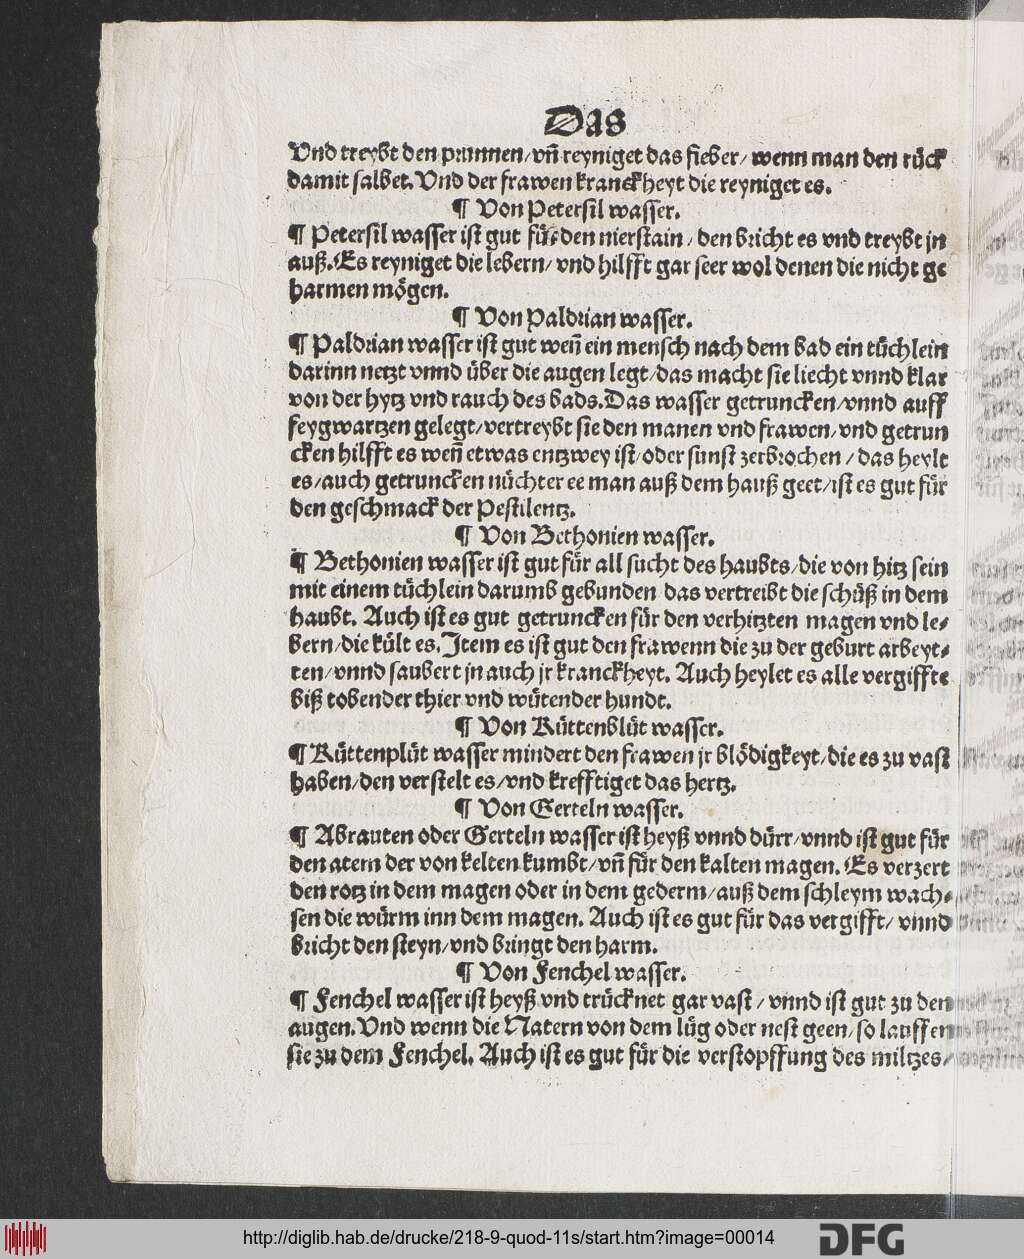 Das
Vnd treybt den prunnen/ vñ reyniget das fieber/ wenn man den rück
damit salbet. Vnd der frawen kranckheyt die reyniget es.
¶ Von Petersil wasser.
¶ Petersil wasser ist gut für den nierstain/ den bricht es vnd treybt jn
auß. Es reyniget die lebern/ vnd hilfft gar seer wol denen die nicht ge
harmen mögen.
¶ Von Paldrian wasser.
¶ Paldrian wasser ist gut weñ ein mensch nach dem bad ein tüchlein
darinn netzt vnnd über die augen legt/ das macht sie liecht vnnd klar
von der hytz vnd rauch des bads. Das wasser getruncken/ vnnd auff
feygwartzen gelegt/ vertreybt sie den manen vnd frawen/ vnd getrun
cken hilfft es weñ etwas entzwey ist/ oder sunst zerbrochen/ das heylt
es/ auch getruncken nüchter ee man auß dem hauß geet/ ist es gut für
den geschmack der Pestilentz.
¶ Von Bethonien wasser.
¶ Bethonien wasser ist gut für all sucht des haubts/ die von hitz sein
mit einem tüchlein darumb gebunden das vertreibt die schüß in dem
haubt. Auch ist es gut getruncken für den verhitzten magen vnd le/
bern/ die kült es. Item es ist gut den frawenn die zu der geburt arbeyt/
ten/ vnnd saubert jn auch jr kranckheyt. Auch heylet es alle vergiffte
biß tobender thier vnd wütender hundt.
¶ Von Küttenblüt wasser.
¶ Küttenplüt wasser mindert den frawen jr blödigkeyt/ die es zu vast
haben/ den verstelt es/ vnd krefftiget das hertz.
¶ Von Gerteln wasser.
¶ Abrauten oder Gerteln wasser ist heyß vnnd dürr/ vnnd ist gut für
den atem der von kelten kumbt/ vñ für den kalten magen. Es verzert
den rotz in dem magen oder in dem gederm/ auß dem schleym wach/
sen die würm inn dem magen. Auch ist es gut für das vergifft/ vnnd
bricht den steyn/ vnd bringt den harm.
¶ Von Fenchel wasser.
¶ Fenchel wasser ist heyß vnd trücknet gar vast/ vnnd ist gut zu den
augen. Vnd wenn die Natern von dem lüg oder nest geen/ so lauffen
sie zu dem Fenchel. Auch ist es gut für die verstopffung des miltzes/
http://diglib.hab.de/drucke/218-9-quod-11s/start.htm?image=00014
DFG